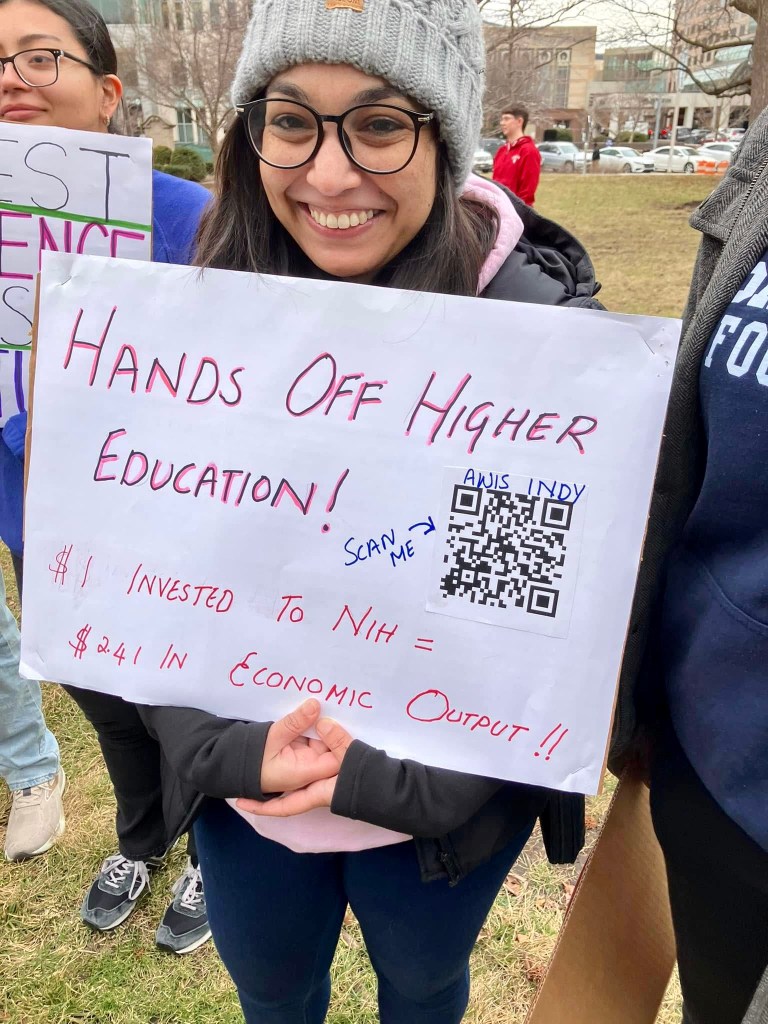 EST
ENCE
S
HANDS OFF HIGHER
EDUCATION!
AWIS INDY
SCAN
ME
$1 INVESTED TO NIH =
$2.41 IN ECONOMIC OUTPUT!!
FOU